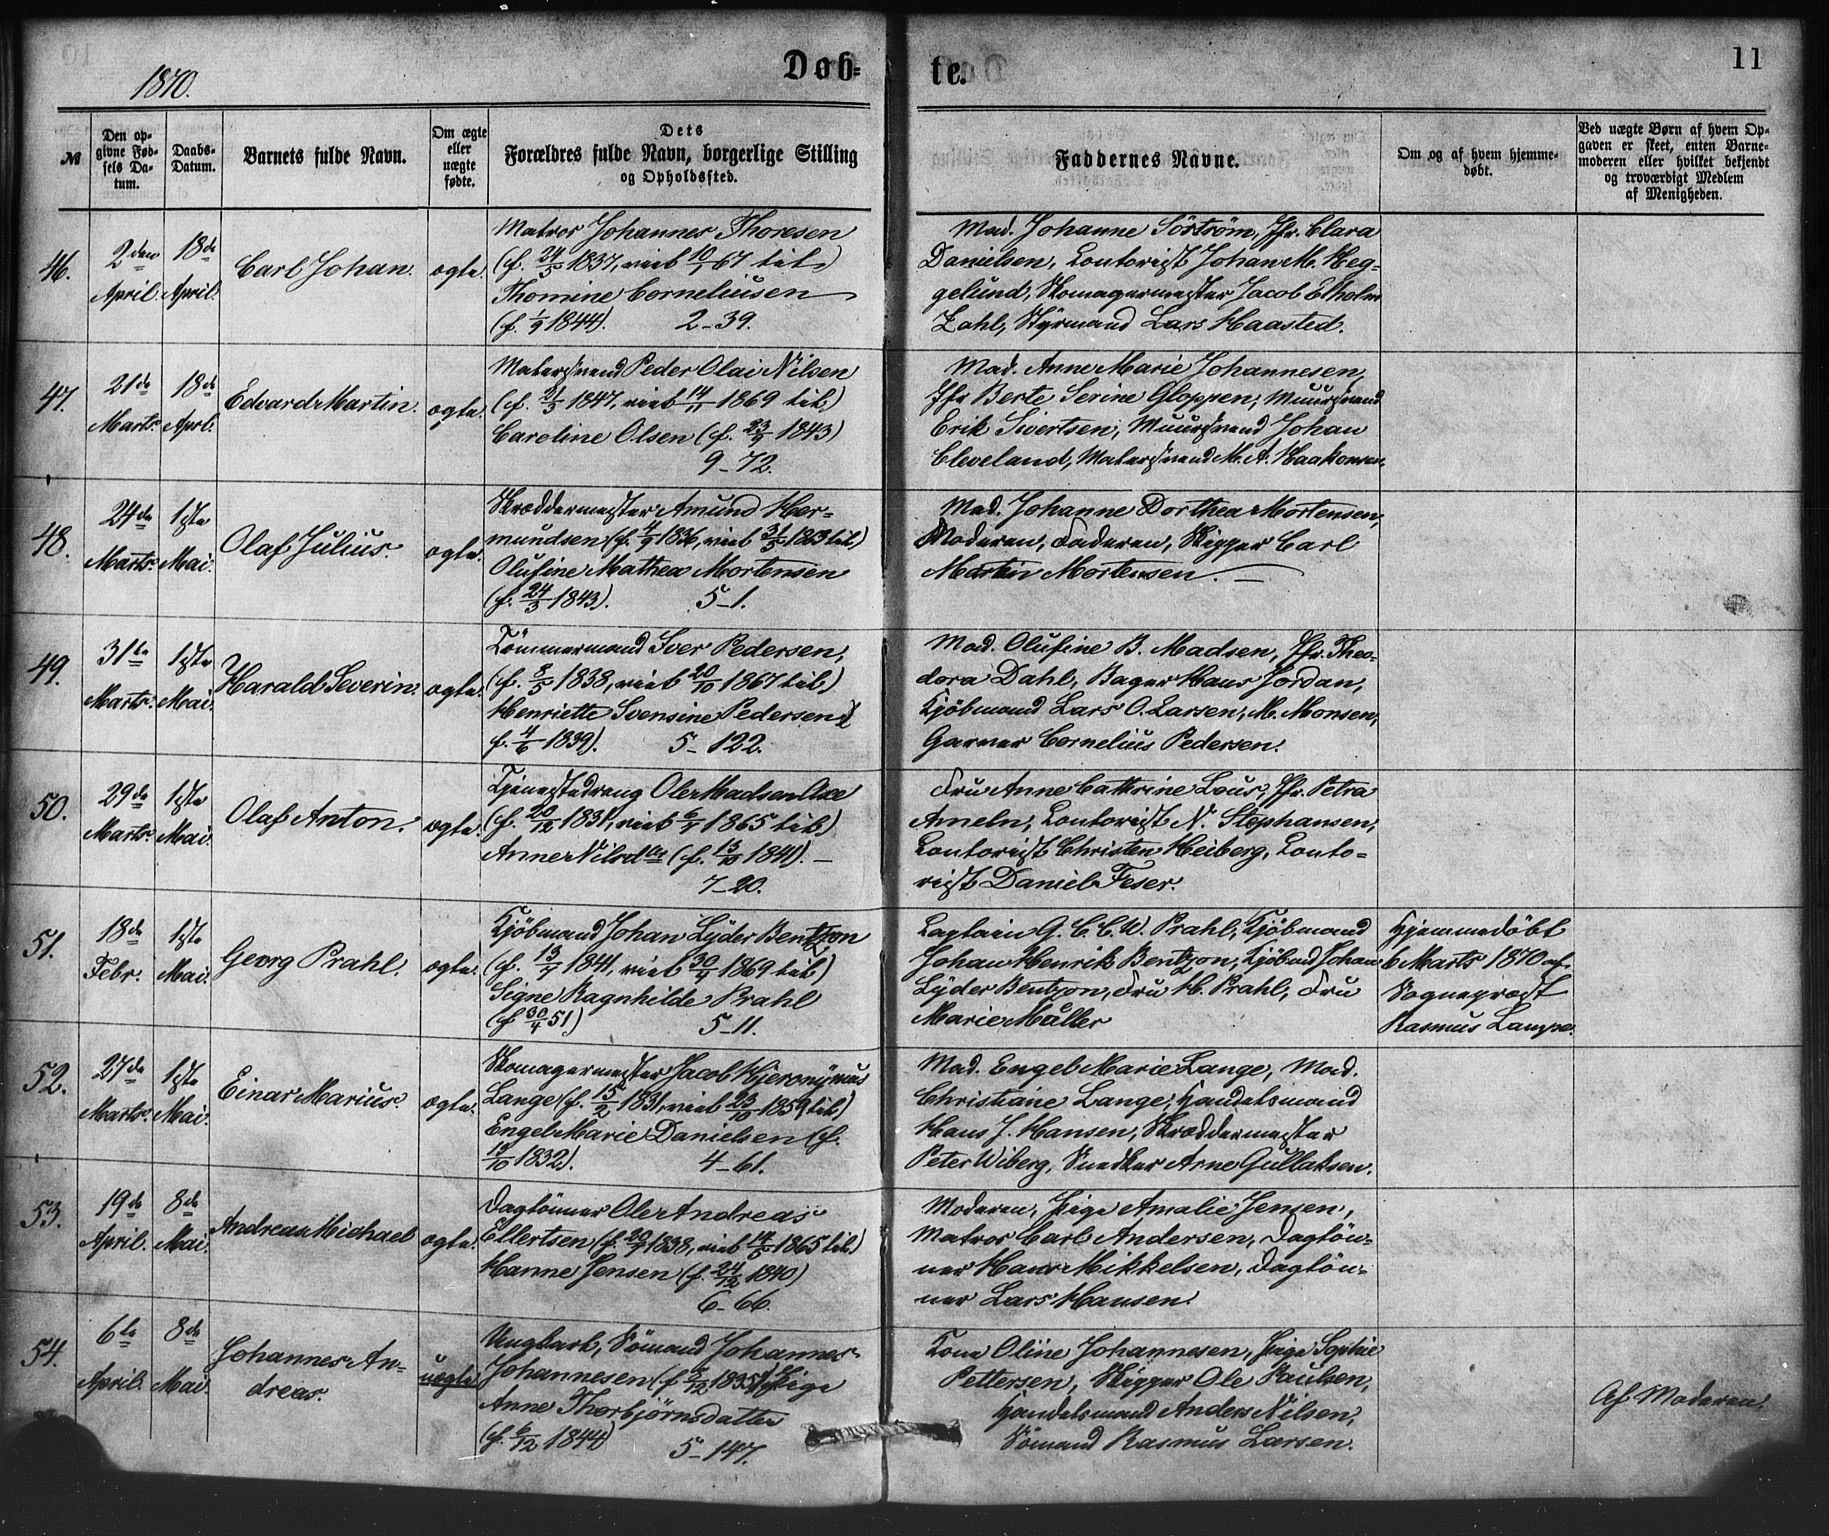 1870.
Døb-
te.
11
№
Den op-
givne Fød-
sels Da-
tum.
Daabs-
Datum.
Barnets fulde Navn.
Om ægte
eller
uægte
fødte.
Dets
Forældres fulde Navn, borgerlige Stilling
og Opholdssted.
Faddernes Navne.
Om og af hvem hjemme-
døbt.
Ved uægte Børn af hvem Op-
gaven er skeet, enten Barne-
moderen eller hvilket bekjendt
og troværdigt Medlem
af Menigheden.
46.
2den
April.
18de
April.
Carl Johan.
ægte.
Matros Johannes Thoresen
(f. 24/5 1837, viet 10/1 67 til)
Thomine Corneliusen
(f. 1/9 1844). 2-39.
Mad. Johanne Söström, Jfr. Clara
Danielsen, Contorist Johan M. Heg-
gelund, Skomagermester Jacob Elholm
Zahl, Styrmand Lars Haasted.
47.
21de
Marts.
18de
April.
Edvard Martin.
ægte.
Malersvend Peder Olai Nilsen
(f. 21/3 1847, viet 14/11 1869 til)
Caroline Olsen (f. 23/9 1843)
9-72.
Mad. Anne Marie Johannesen,
Jfr Berte Serine Gloppen, Muursvend
Erik Sivertsen, Muursvend Johan
Cleveland, Malersvend M. A. Haakonsen.
48.
24de
Marts.
1ste
Mai.
Olaf Julius.
ægte.
Skræddermester Amund Her-
mundsen (f. 4/9 1836, viet 31/5 1863 til)
Olufine Mathea Mortensen
(f. 24/3 1843). 5-1.
Mad. Johanne Dorthea Mortensen,
Moderen, Faderen, Skipper Carl
Martin Mortensen.
49.
31te
Marts.
1ste
Mai.
Harald Severin.
ægte.
Tömmermand Iver Pedersen,
(f. 8/5 1838, viet 20/10 1867 til)
Henriette Svensine Pedersen
f. 4/6 1839). 5-122.
Mad. Olufine B. Madsen, Jfr. Theo-
dora Dahl, Bager Hans Jordan,
Kjöbmand Lars O. Larsen, M. Monsen,
Garver Cornelius Pedersen.
50.
29de
Marts.
1ste
Mai.
Olaf Anton.
ægte.
Tjenestedreng Ole Madsen Axe
(f. 20/12 1831, viet 6/1 1865 til)
Anne Nilsdtr (f. 13/10 1841).
7-20.
Fru Anne Cathrine Lous, Jfr. Petra
Ameln, Contorist N. Stephansen,
Contorist Christen Heiberg, Conto-
rist Daniel Feser.
51.
18de
Febr.
1ste
Mai.
Georg Prahl.
ægte.
Kjöbmand Johan Lyder Bentzon
(f. 13/7 1841, viet 30/4 1869 til)
Signe Ragnhilde Prahl
(f 30/4 51) 5-11.
Captain G. C. C. W. Prahl, Kjöbmand
Johan Henrik Bentzon, Kjöbmd Johan
Lyder Bentzon, Fru H. Prahl, Fru
Marie Müller
Hjemmedöbt
6 Marts 1870 af
Sogneprest
Rasmus Lampe.
52.
27de
Marts.
1ste
Mai.
Einar Marius.
ægte.
Skomagermester Jacob Hjeronymus
Lange (f. 15/2 1831, viet 23/10 1859 til)
Engel Marie Danielsen (f.
19/10 1832). 4-61.
Mad. Engel Marie Lange, Mad.
Christiane Lange, Handelsmand
Hans J. Hansen, Skræddermester
Peter Wiberg, Snedker Arne Gullaksen.
53.
19de
April.
8de
Mai.
Andreas Michael
ægte.
Daglönner Ole Andreas
Ellertsen (f. 20/7 1838, viet 14/5 1865 til)
Hanne Jensen (f. 24/12 1840)
6-66.
Moderen, Pige Amalie Jensen,
Matros Carl Andersen, Daglön-
ner Hans Mikkelsen, Daglön-
ner Lars Hansen.
54.
6te
April.
8de
Mai
Johannes An-
dreas.
uægte.
Ungkarl, Sömand Johannes
Johannesen (f. 2/12 1835), Pige
Anne Thorbjørnsdatter
(f. 6/12 1844) 5-147.
Kone Oline Johannesen, Pige Sophie
Pettersen, Skipper Ole Paulsen,
Handelsmand Anders Nilsen,
Sömand Rasmus Larsen.
Af Moderen.